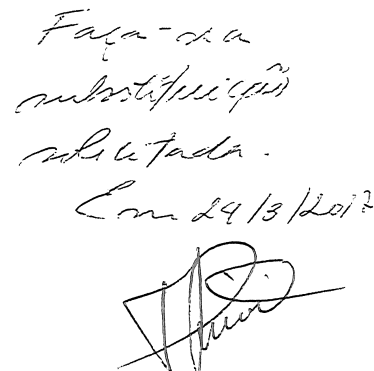 Faça-se a
substituição
solicitada.
Em 29/3/2017